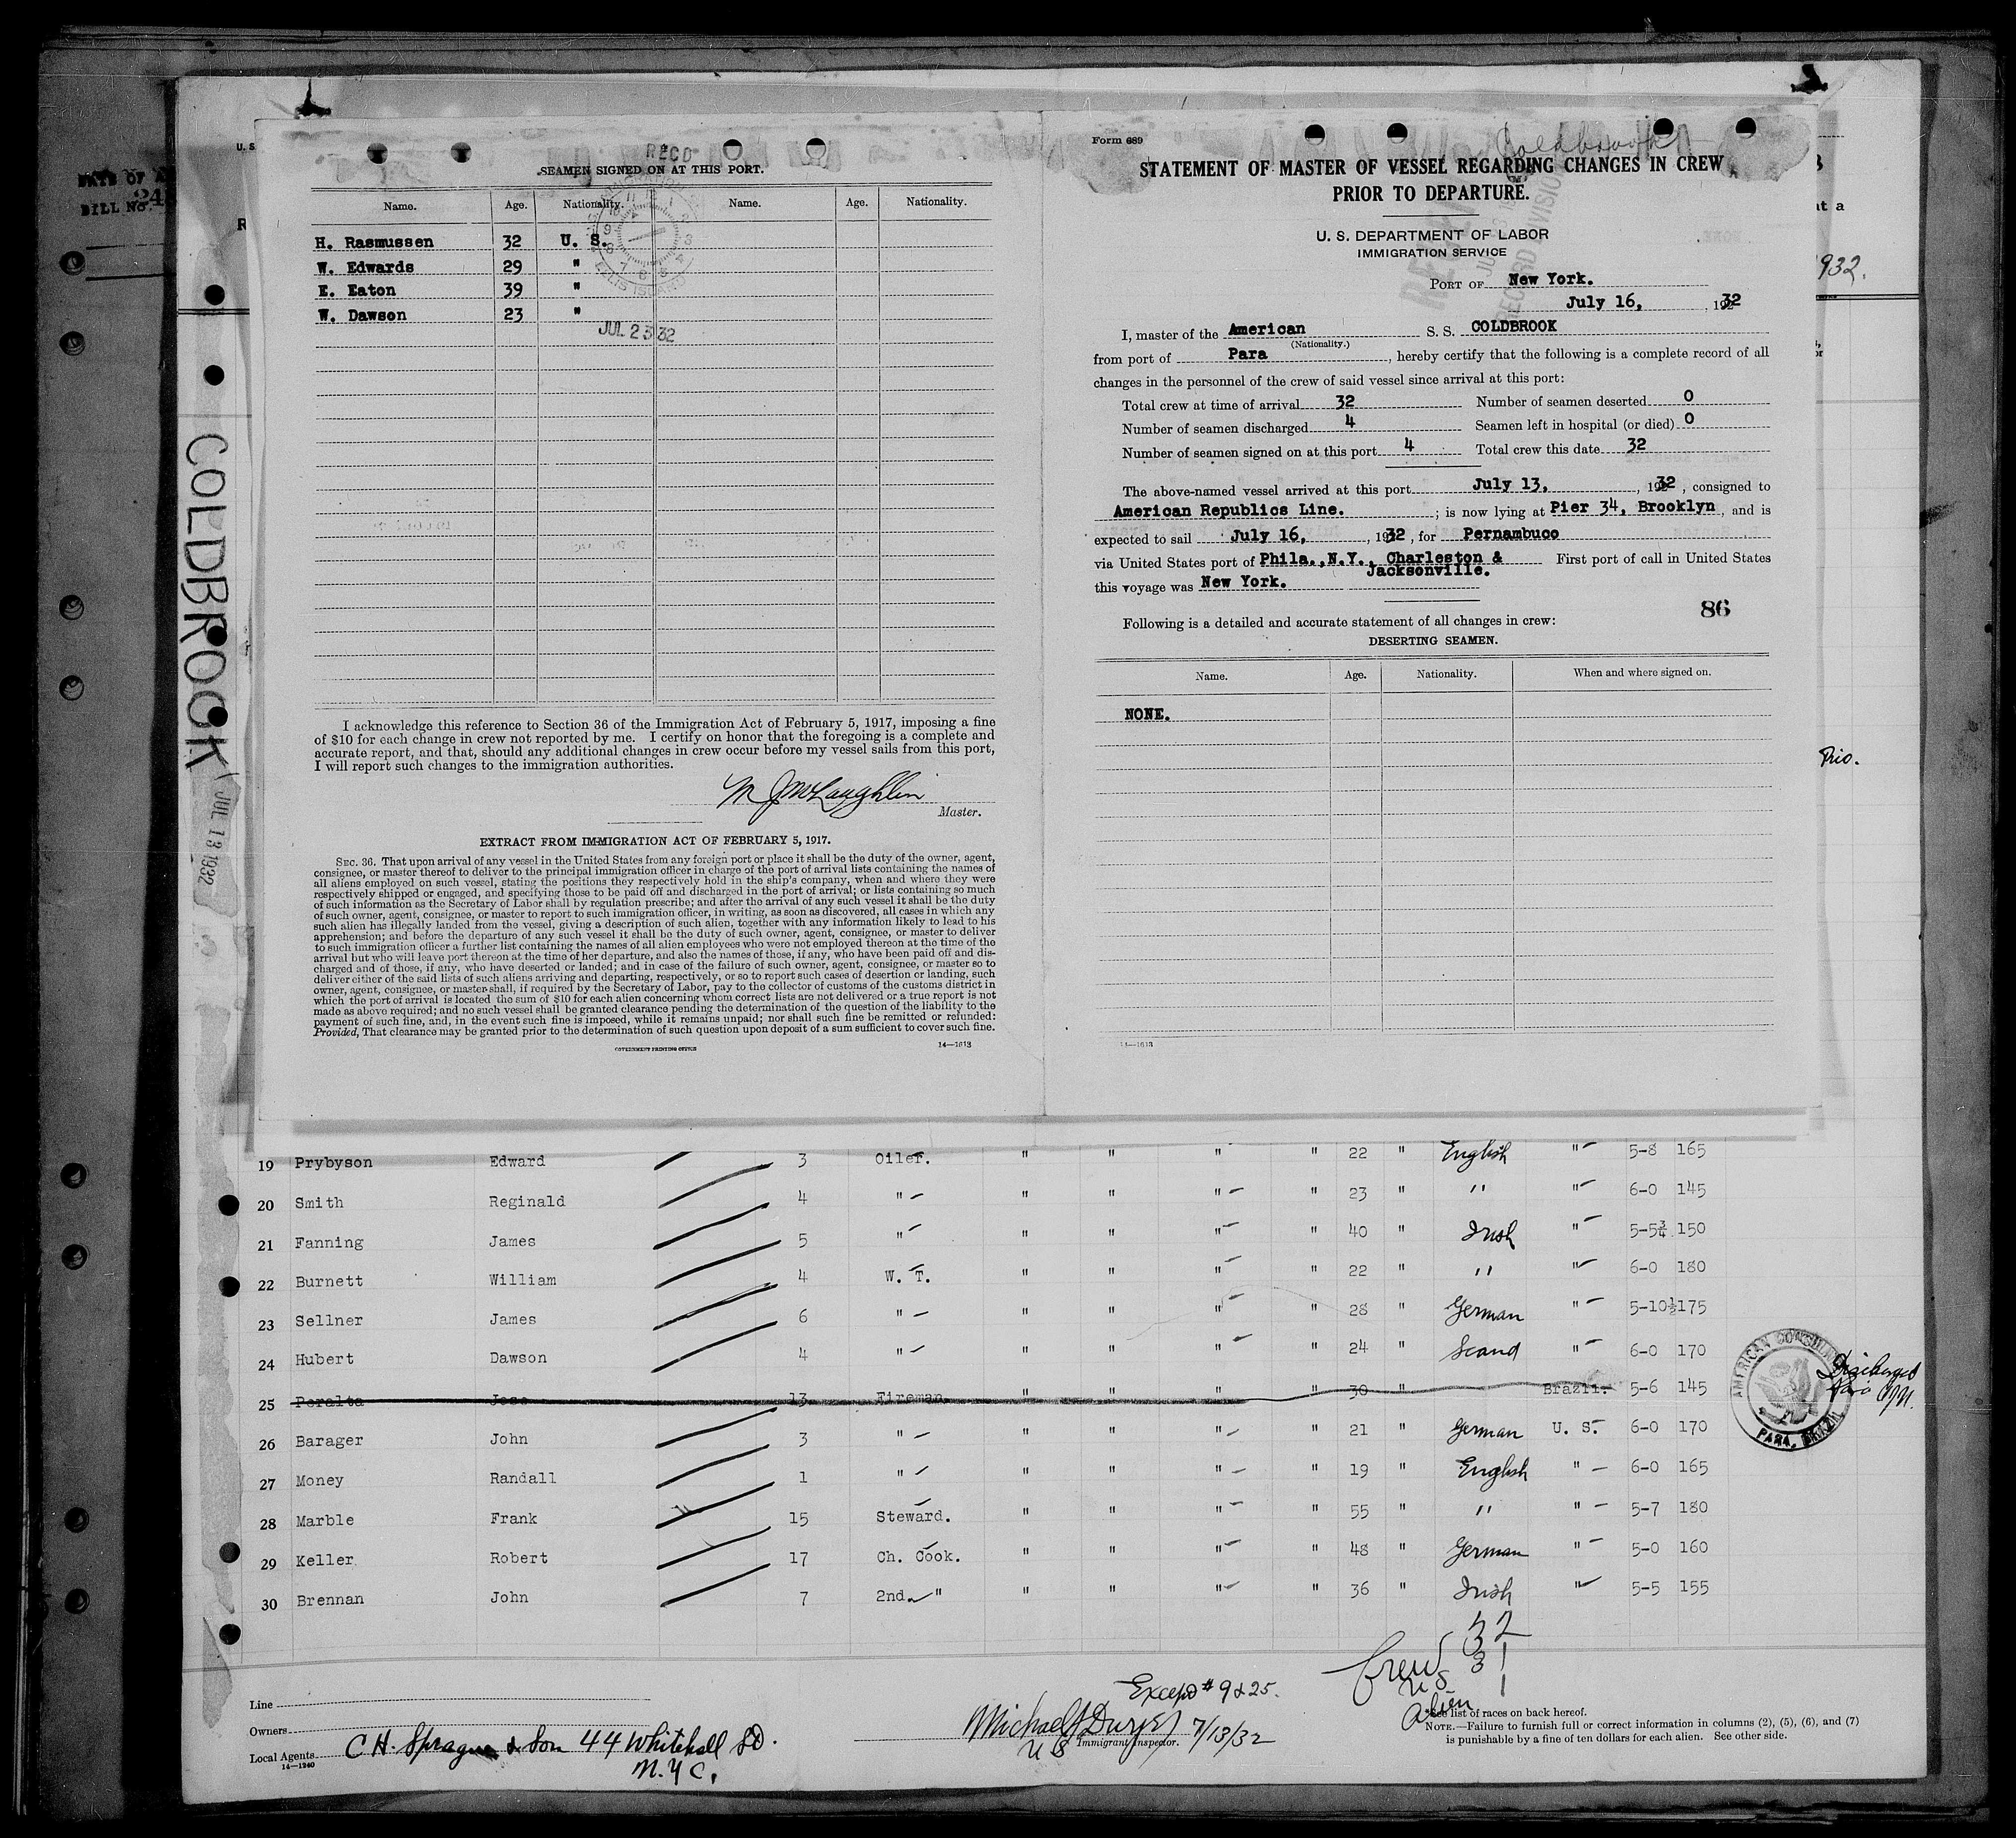 DATE OF A
BILL No. 248
U. S
R
COLDBROOK
JUL 13 1932
REC'D
SEAMEN SIGNED ON AT THIS PORT.
Name. Age. Nationality. Name. Age. Nationality.
H. Rasmussen 32 U. S.
W. Edwards 29 "
E. Eaton 39 "
W. Dawson 23 "
ELLIS ISLAND
JUL 23 32
I acknowledge this reference to Section 36 of the Immigration Act of February 5, 1917, imposing a fine
of $10 for each change in crew not reported by me. I certify on honor that the foregoing is a complete and
accurate report, and that, should any additional changes in crew occur before my vessel sails from this port,
I will report such changes to the immigration authorities.
M J McLaughlin
Master.
EXTRACT FROM IMMIGRATION ACT OF FEBRUARY 5, 1917.
SEC. 36. That upon arrival of any vessel in the United States from any foreign port or place it shall be the duty of the owner, agent,
consignee, or master thereof to deliver to the principal immigration officer in charge of the port of arrival lists containing the names of
all aliens employed on such vessel, stating the positions they respectively hold in the ship's company, when and where they were
respectively shipped or engaged, and specifying those to be paid off and discharged in the port of arrival; or lists containing so much
of such information as the Secretary of Labor shall by regulation prescribe; and after the arrival of any such vessel it shall be the duty
of such owner, agent, consignee, or master to report to such immigration officer, in writing, as soon as discovered, all cases in which any
such alien has illegally landed from the vessel, giving a description of such alien, together with any information likely to lead to his
apprehension; and before the departure of any such vessel it shall be the duty of such owner, agent, consignee, or master to deliver
to such immigration officer a further list containing the names of all alien employees who were not employed thereon at the time of the
arrival but who will leave port thereon at the time of her departure, and also the names of those, if any, who have been paid off and dis-
charged and of those, if any, who have deserted or landed; and in case of the failure of such owner, agent, consignee, or master so to
deliver either of the said lists of such aliens arriving and departing, respectively, or so to report such cases of desertion or landing, such
owner, agent, consignee, or master shall, if required by the Secretary of Labor, pay to the collector of customs of the customs district in
which the port of arrival is located the sum of $10 for each alien concerning whom correct lists are not delivered or a true report is not
made as above required; and no such vessel shall be granted clearance pending the determination of the question of the liability to the
payment of such fine, and, in the event such fine is imposed, while it remains unpaid; nor shall such fine be remitted or refunded:
Provided, That clearance may be granted prior to the determination of such question upon deposit of a sum sufficient to cover such fine.
GOVERNMENT PRINTING OFFICE 14—1613
Form 689
Coldbrook
STATEMENT OF MASTER OF VESSEL REGARDING CHANGES IN CREW
PRIOR TO DEPARTURE.
U. S. DEPARTMENT OF LABOR
IMMIGRATION SERVICE
RECORD DIVISION
PORT OF New York.
July 16, , 1932
I, master of the American S. S. COLDBROOK
(Nationality.)
from port of Para , hereby certify that the following is a complete record of all
changes in the personnel of the crew of said vessel since arrival at this port:
Total crew at time of arrival 32 Number of seamen deserted 0
Number of seamen discharged 4 Seamen left in hospital (or died) 0
Number of seamen signed on at this port 4 Total crew this date 32
The above-named vessel arrived at this port July 13, , 1932 , consigned to
American Republics Line. ; is now lying at Pier 34, Brooklyn , and is
expected to sail July 16, , 1932 , for Pernambuco
via United States port of Phila.,N.Y., Charleston & First port of call in United States
Jacksonville.
this voyage was New York.
86
Following is a detailed and accurate statement of all changes in crew:
DESERTING SEAMEN.
Name. Age. Nationality. When and where signed on.
NONE.
14—1613
at a
1932.
Rio.
19 Prybyson Edward 3 Oiler. " " " " 22 " English " 5-8 165
20 Smith Reginald 4 " " " " " 23 " " " 6-0 145
21 Fanning James 5 " " " " " 40 " Irish " 5-5¾ 150
22 Burnett William 4 W. T. " " " " 22 " " " 6-0 180
23 Sellner James 6 " " " " " 28 " German " 5-10½ 175
24 Hubert Dawson 4 " " " " " 24 " Scand " 6-0 170
25 Peralta Jose 13 Fireman " " " " 30 " Brazil. 5-6 145
AMERICAN CONSULATE PARA, BRAZIL
Discharged
Para
26 Barager John 3 " " " " " 21 " German U. S. 6-0 170
27 Money Randall 1 " " " " " 19 " English " 6-0 165
28 Marble Frank 15 Steward. " " " " 55 " " " 5-7 180
29 Keller Robert 17 Ch. Cook. " " " " 48 " German " 5-0 160
30 Brennan John 7 2nd " " " " " 36 " Irish " 5-5 155
Crew 32
US 31
Alien 1
Line
Owners
Local Agents C H. Sprague & Son 44 Whitehall St.
N.Y C.
14—1240
Except # 9 & 25.
7/13/32
US Immigrant Inspector.
*See list of races on back hereof.
NOTE.—Failure to furnish full or correct information in columns (2), (5), (6), and (7)
is punishable by a fine of ten dollars for each alien. See other side.